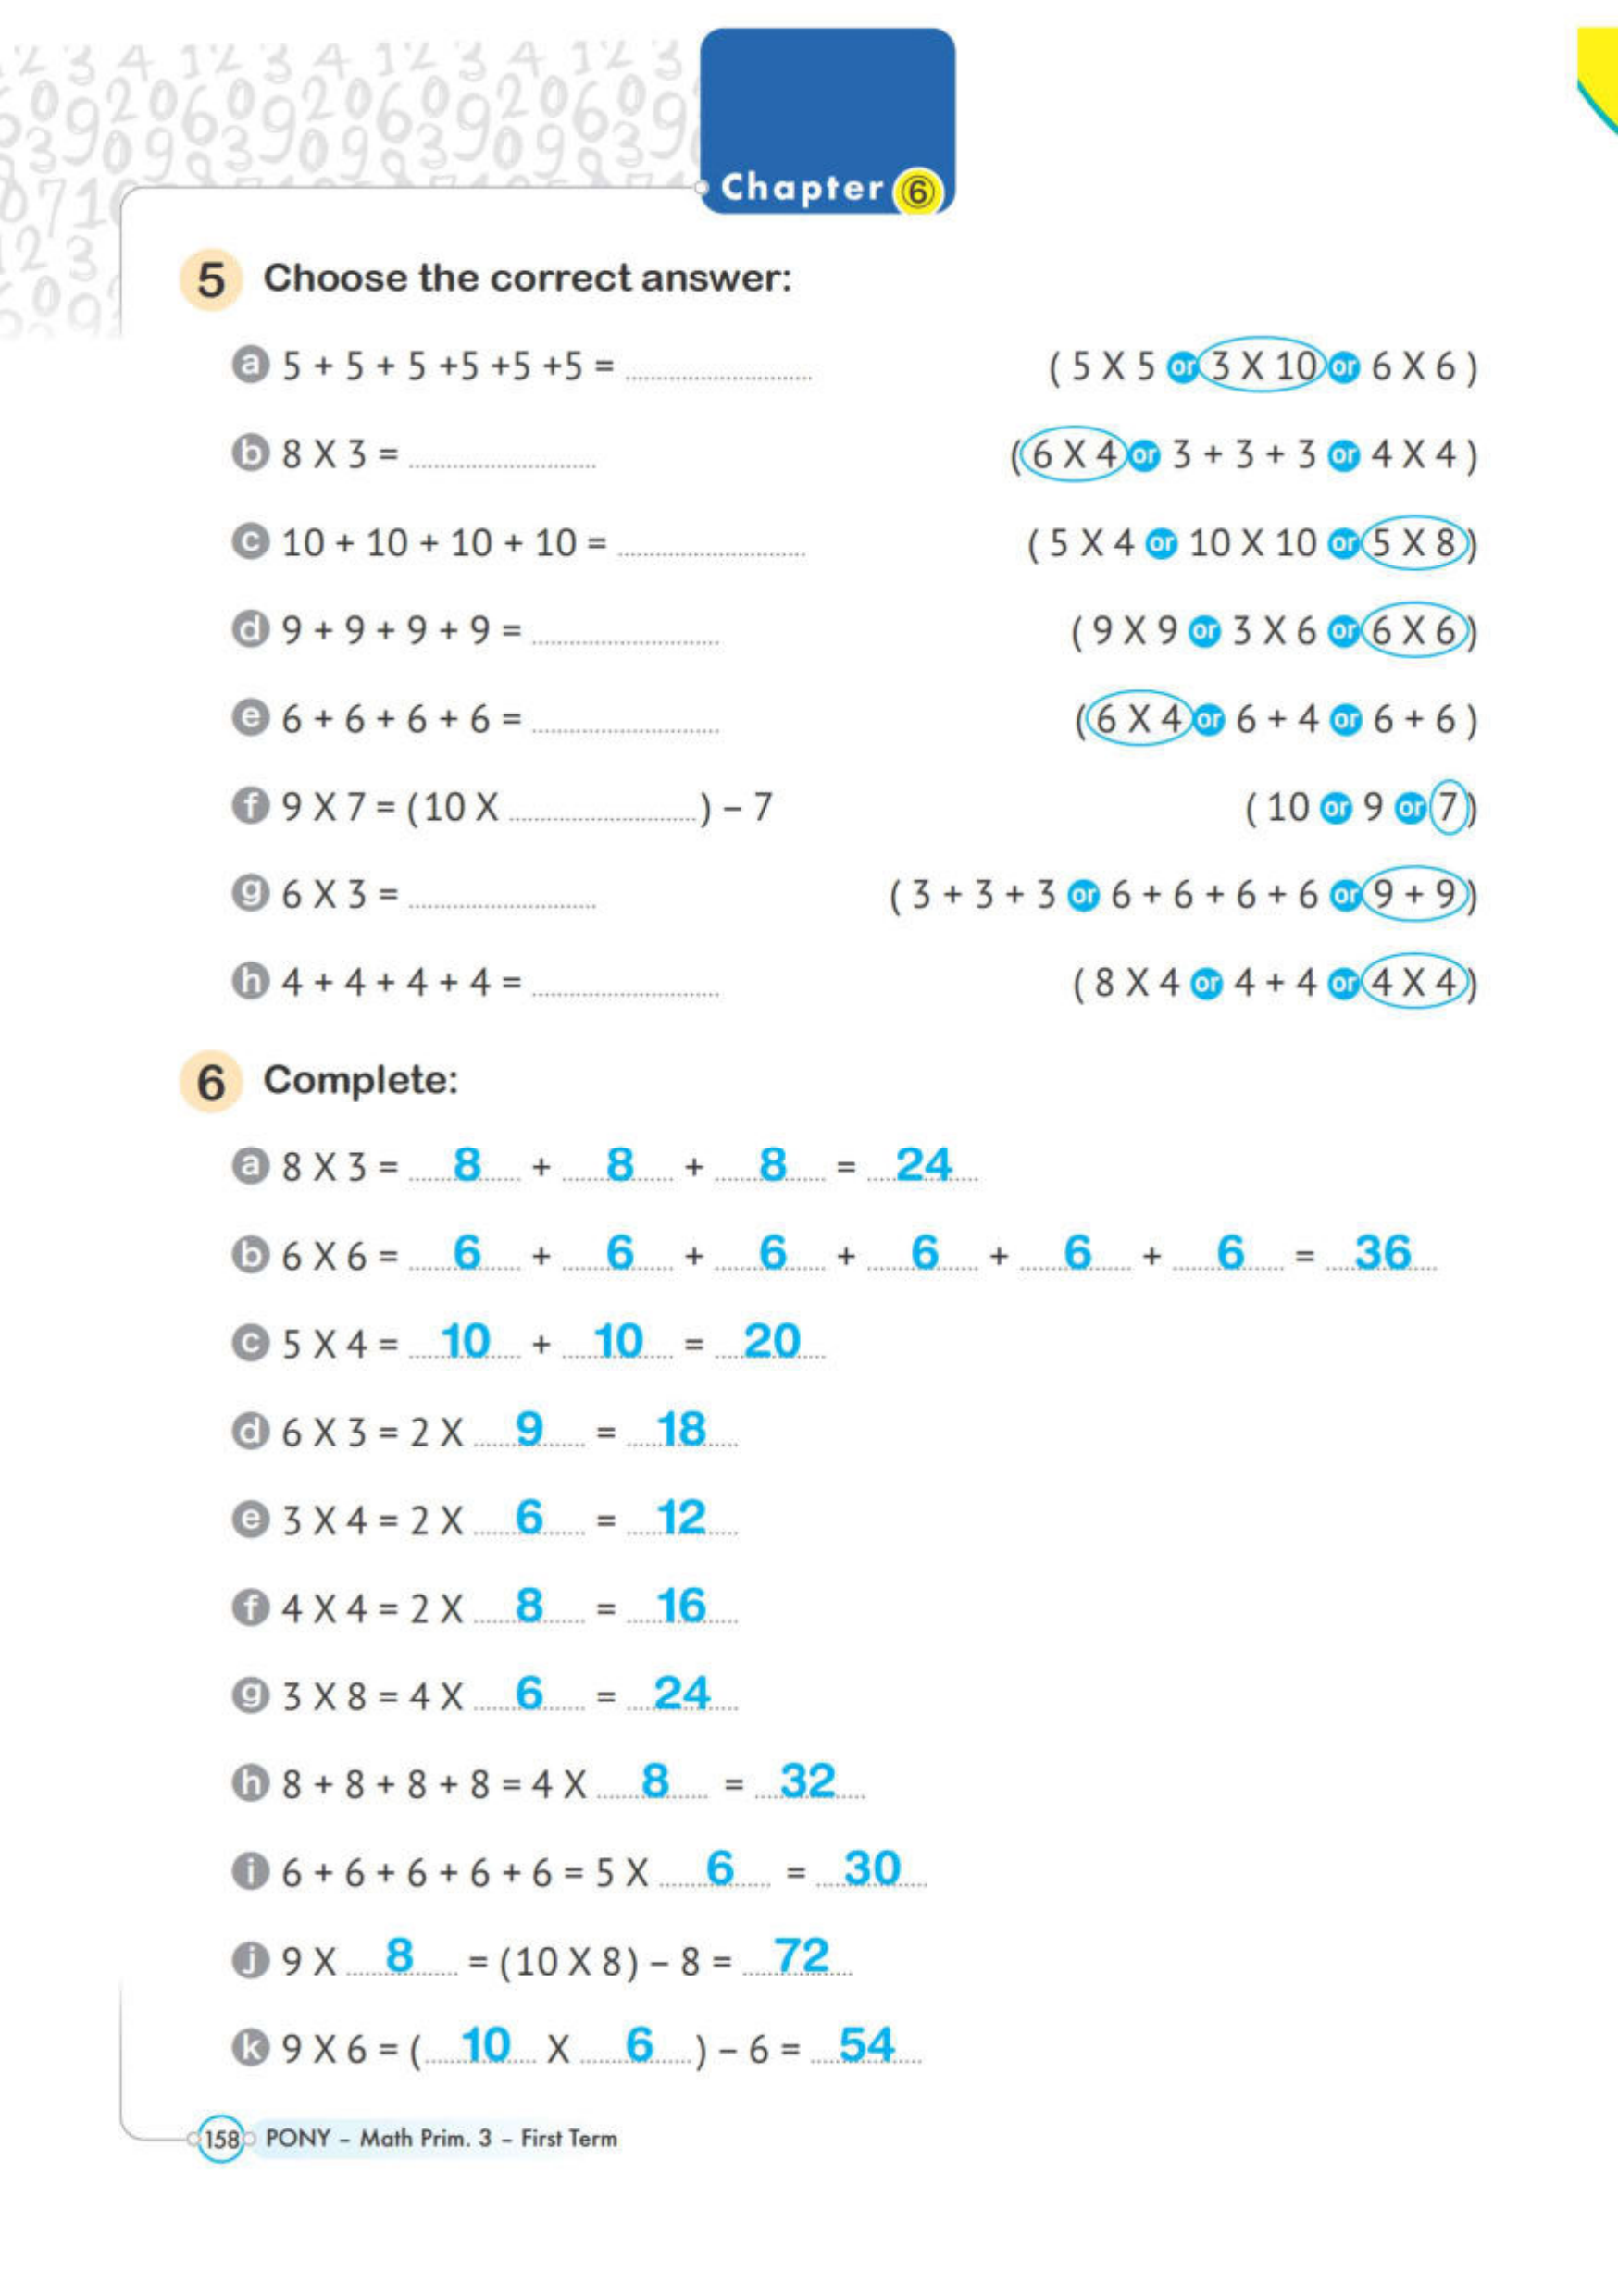 Chapter 6
5 Choose the correct answer:
a 5 + 5 + 5 +5 +5 +5 = ( 5 X 5 or 3 X 10 or 6 X 6 )
b 8 X 3 = ( 6 X 4 or 3 + 3 + 3 or 4 X 4 )
c 10 + 10 + 10 + 10 = ( 5 X 4 or 10 X 10 or 5 X 8 )
d 9 + 9 + 9 + 9 = ( 9 X 9 or 3 X 6 or 6 X 6 )
e 6 + 6 + 6 + 6 = ( 6 X 4 or 6 + 4 or 6 + 6 )
f 9 X 7 = ( 10 X ) – 7 ( 10 or 9 or 7 )
g 6 X 3 = ( 3 + 3 + 3 or 6 + 6 + 6 + 6 or 9 + 9 )
h 4 + 4 + 4 + 4 = ( 8 X 4 or 4 + 4 or 4 X 4 )
6 Complete:
a 8 X 3 = 8 + 8 + 8 = 24
b 6 X 6 = 6 + 6 + 6 + 6 + 6 + 6 = 36
c 5 X 4 = 10 + 10 = 20
d 6 X 3 = 2 X 9 = 18
e 3 X 4 = 2 X 6 = 12
f 4 X 4 = 2 X 8 = 16
g 3 X 8 = 4 X 6 = 24
h 8 + 8 + 8 + 8 = 4 X 8 = 32
i 6 + 6 + 6 + 6 + 6 = 5 X 6 = 30
j 9 X 8 = ( 10 X 8 ) – 8 = 72
k 9 X 6 = ( 10 X 6 ) – 6 = 54
158 PONY – Math Prim. 3 – First Term